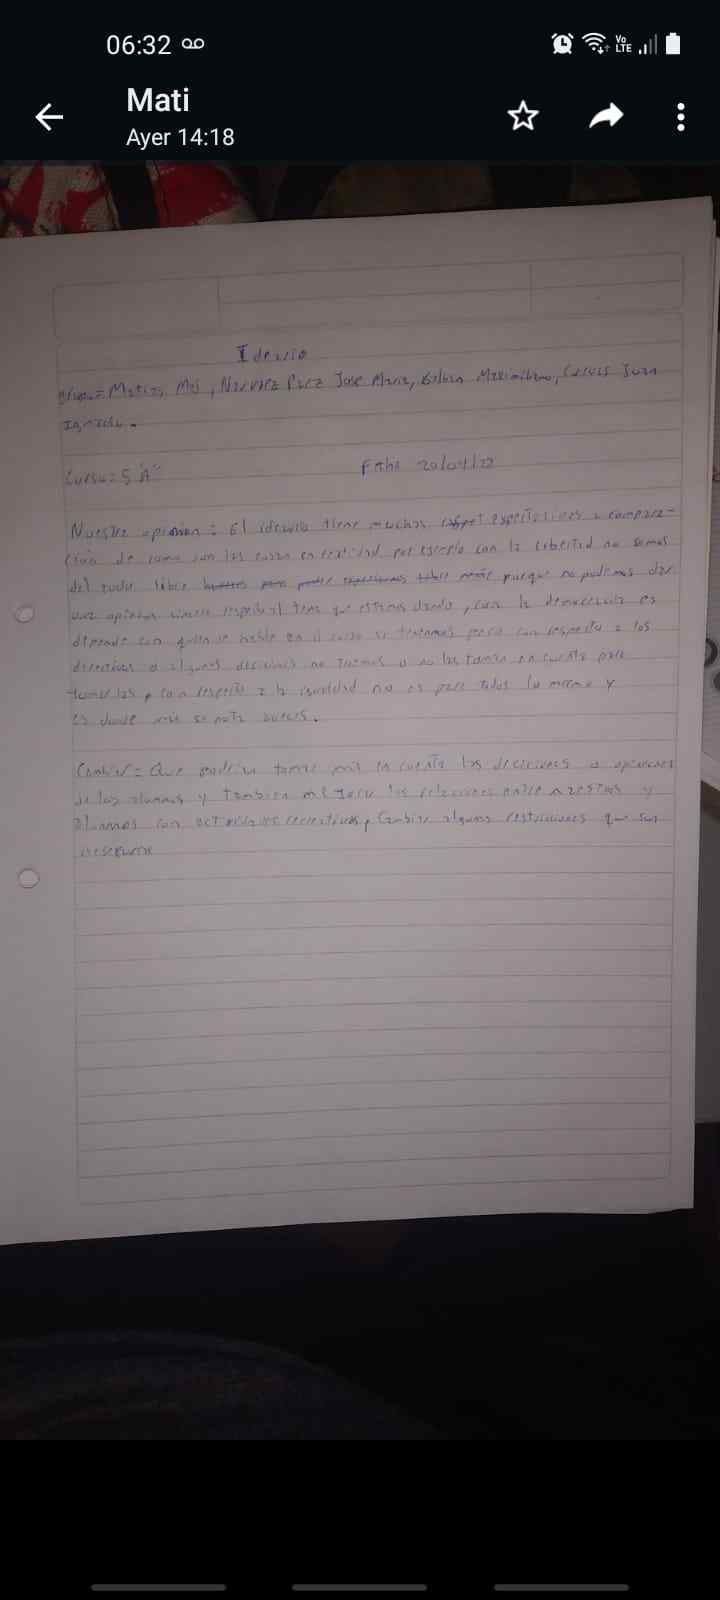 06:32
Vo
LTE
Mati
Ayer 14:18
Ideario
Grupo= Matias, Narvaez Paez Jose Maria, Maximiliano, Juan
Ignacio.
Curso= 5 "A"
Fecha 20/04/22
Nuestra opinion = El ideario tiene muchas espectativas a compara-
ción de como son las cosas en realidad, por ejemplo con la libertad no somos
del todo libre porque no podemos dar
una opinion respeto al tema que estamos dando, con la democracia es
depende con quien se hable en el curso si tenemos pero con respecto a los
directivos o algunas deciciones no tenemos o no las toman en cuenta para
tomarlas, con respecto a la igualdad no es para todos lo mismo y
es donde más se nota aveces.
Cambiar = Que podrian tomar más en cuenta las deciciones o opiniones
de los alumnos y tambien mejorar las relaciones entre maestros y
alumnos con actividades recreativas, Cambiar algunas restriciones que son